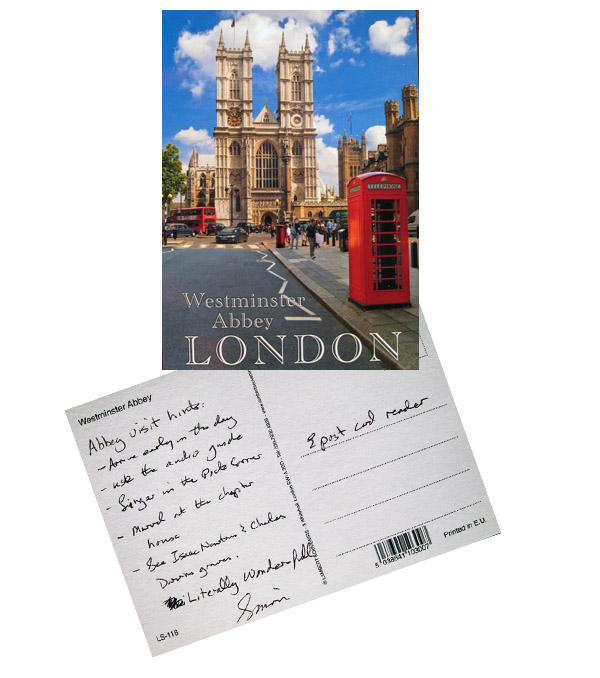 TELEPHONE
Westminster
Abbey
LONDON
Westminster Abbey
Abbey visit hints:
- Arrive early in the day
- use the audio guide
- Linger in the Poets Corner
- Marvel at the chapter
house
- See Isaac Newtons & Charles
Darwins graves.
Literally Wonderfully
Simon
LS-118
Epost card reader
5 038541 103007
Printed in E.U.